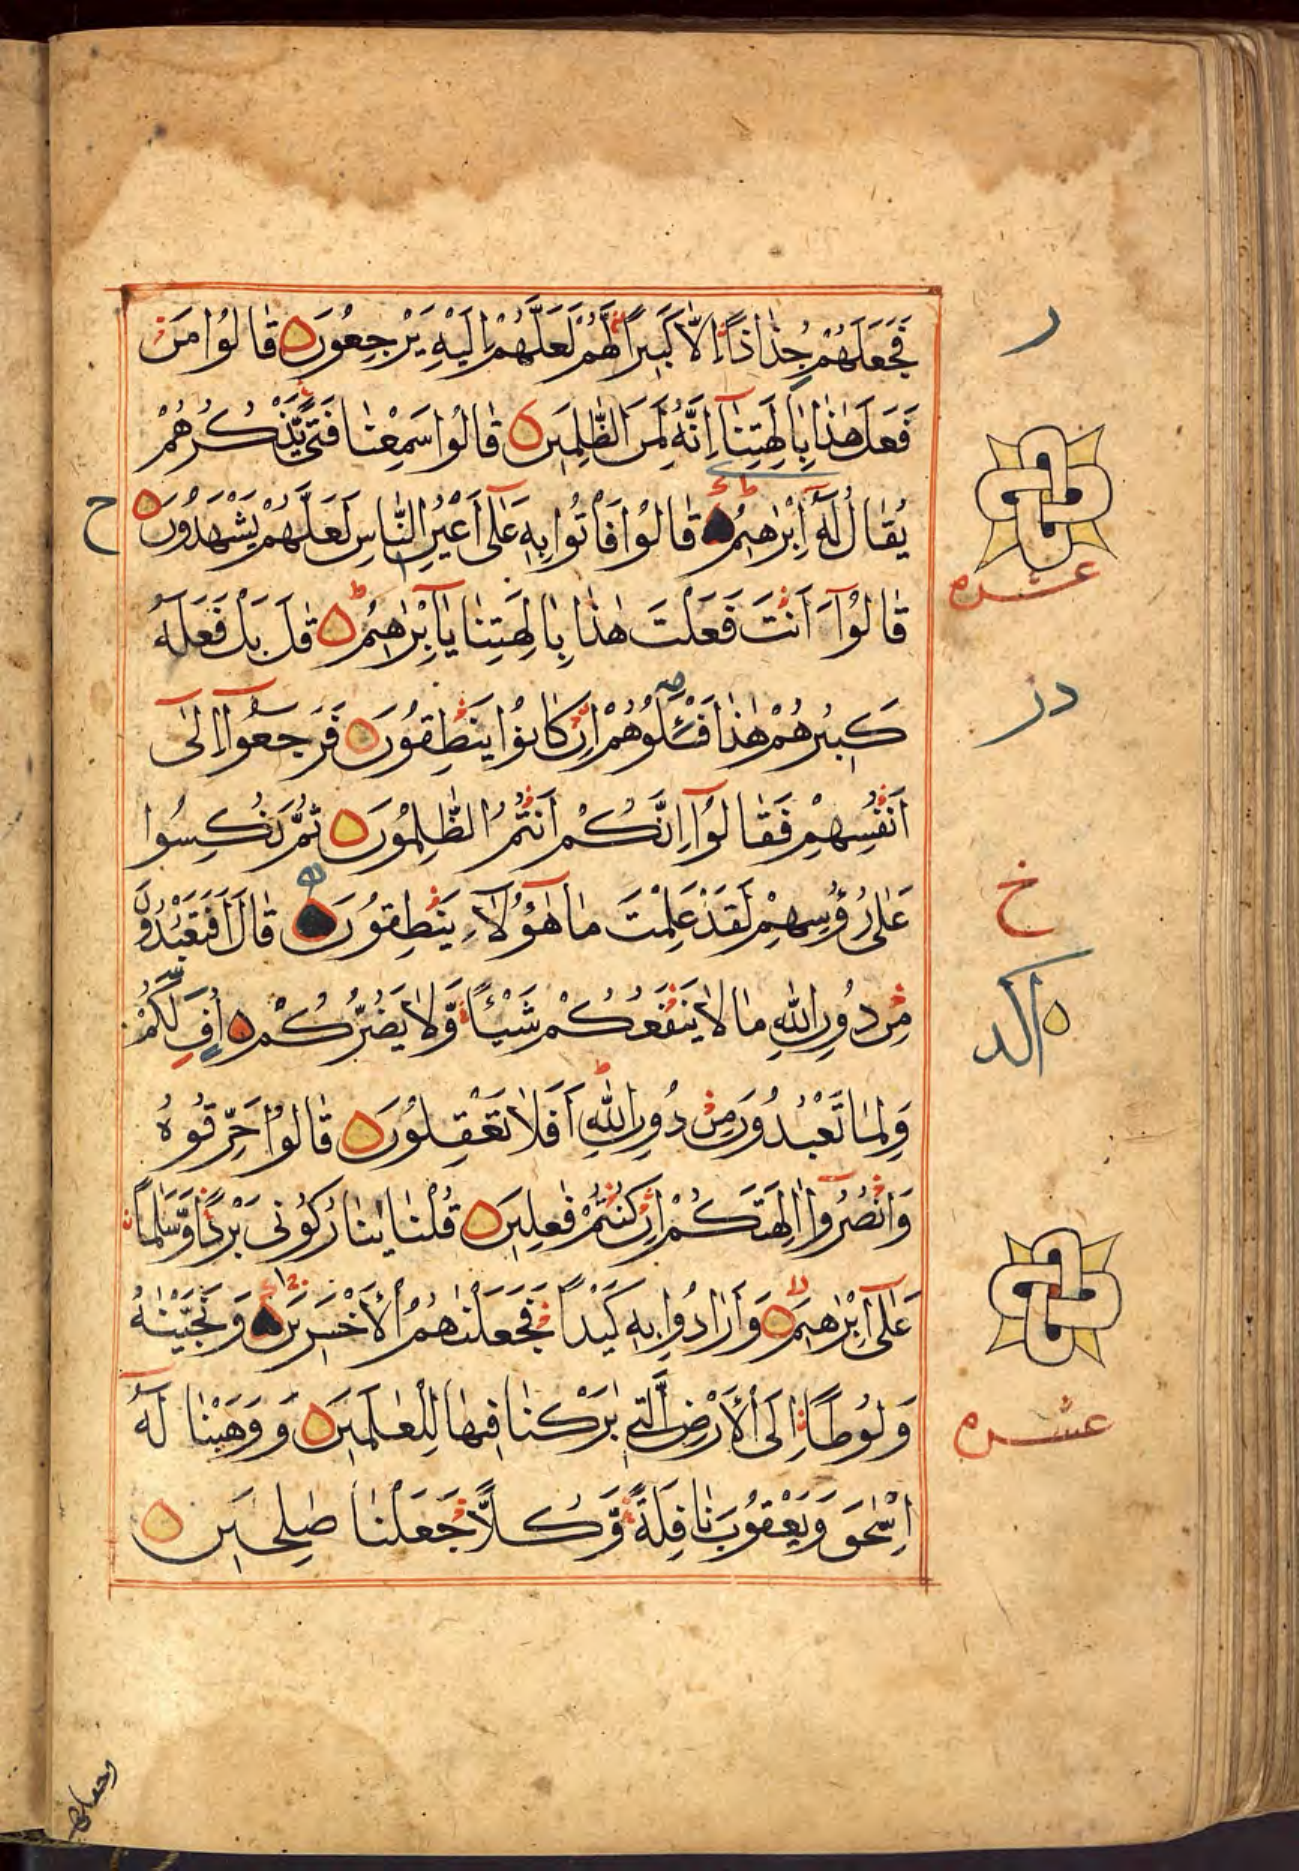 فَجَعَلَهُمْ جُذٰاذاً اِلاّٰ كَبِيراً لَهُمْ لَعَلَّهُمْ اِلَيْهِ يَرْجِعُونَ قٰالُوا مَنْ
فَعَلَ هٰذٰا بِاٰلِهَتِنٰآ اِنَّهُ لَمِنَ الظّٰلِمِينَ قٰالُوا سَمِعْنٰا فَتًى يَّذْكُرُهُمْ
يُقٰالُ لَهُ اِبْرٰهِيمُ قٰالُوا فَأْتُوا بِهِ عَلٰى اَعْيُنِ النّٰاسِ لَعَلَّهُمْ يَشْهَدُونَ
ح
قٰالُوآ ءَاَنْتَ فَعَلْتَ هٰذٰا بِاٰلِهَتِنٰا يٰآاِبْرٰاهِيمُ قٰلَ بَلْ فَعَلَهُ
كَبِيرُهُمْ هٰذٰا فَسْئَلُوهُمْ اِنْ كٰانُوا يَنْطِقُونَ فَرَجَعُوآ اِلٰى
اَنْفُسِهِمْ فَقٰالُوآ اِنَّكُمْ اَنْتُمُ الظّٰلِمُونَ ثُمَّ نُكِسُوا
عَلٰى رُؤُسِهِمْ لَقَدْ عَلِمْتَ مٰا هٰؤُلآءِ يَنْطِقُونَ قٰالَ اَفَتَعْبُدُونَ
مِنْ دُونِ اللّٰهِ مٰا لاٰ يَنْفَعُكُمْ شَيْئاً وَّلاٰ يَضُرُّكُمْ اُفٍّ لَّكُمْ
وَلِمٰا تَعْبُدُونَ مِنْ دُونِ اللّٰهِ اَفَلاٰ تَعْقِلُونَ قٰالُوا حَرِّقُوهُ
وَانْصُرُوآ اٰلِهَتَكُمْ اِنْ كُنْتُمْ فٰعِلِينَ قُلْنٰا يٰنٰارُ كُونِى بَرْداً وَّسَلٰماً
عَلٰٓى اِبْرٰهِيمَ وَاَرٰادُوا بِهِ كَيْداً فَجَعَلْنٰهُمُ الْاَخْسَرِينَ وَنَجَّيْنٰهُ
وَلُوطاً اِلَى الْاَرْضِ الَّتِى بٰرَكْنٰا فِيهٰا لِلْعٰلَمِينَ وَوَهَبْنٰا لَهُ
اِسْحٰقَ وَيَعْقُوبَ نٰافِلَةً وَّكُلاًّ جَعَلْنٰا صٰلِحِينَ
ر
عشره
در
خ
عشره